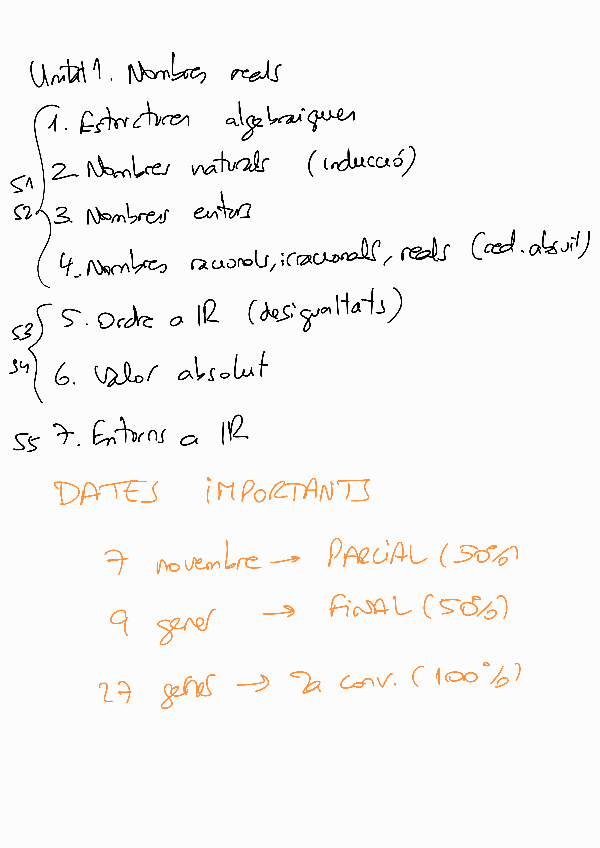 Unitat 1. Nombres reals
1. Estructures algebraiques
S1 2. Nombres naturals (inducció)
S2 3. Nombres enters
4. Nombres racionals, irracionals, reals (red. absurd)
S3 5. Ordre a IR (desigualtats)
S4 6. Valor absolut
S5 7. Entorns a IR
DATES IMPORTANTS
7 novembre → PARCIAL (50%)
9 gener → FINAL (50%)
27 gener → 2a conv. (100%)